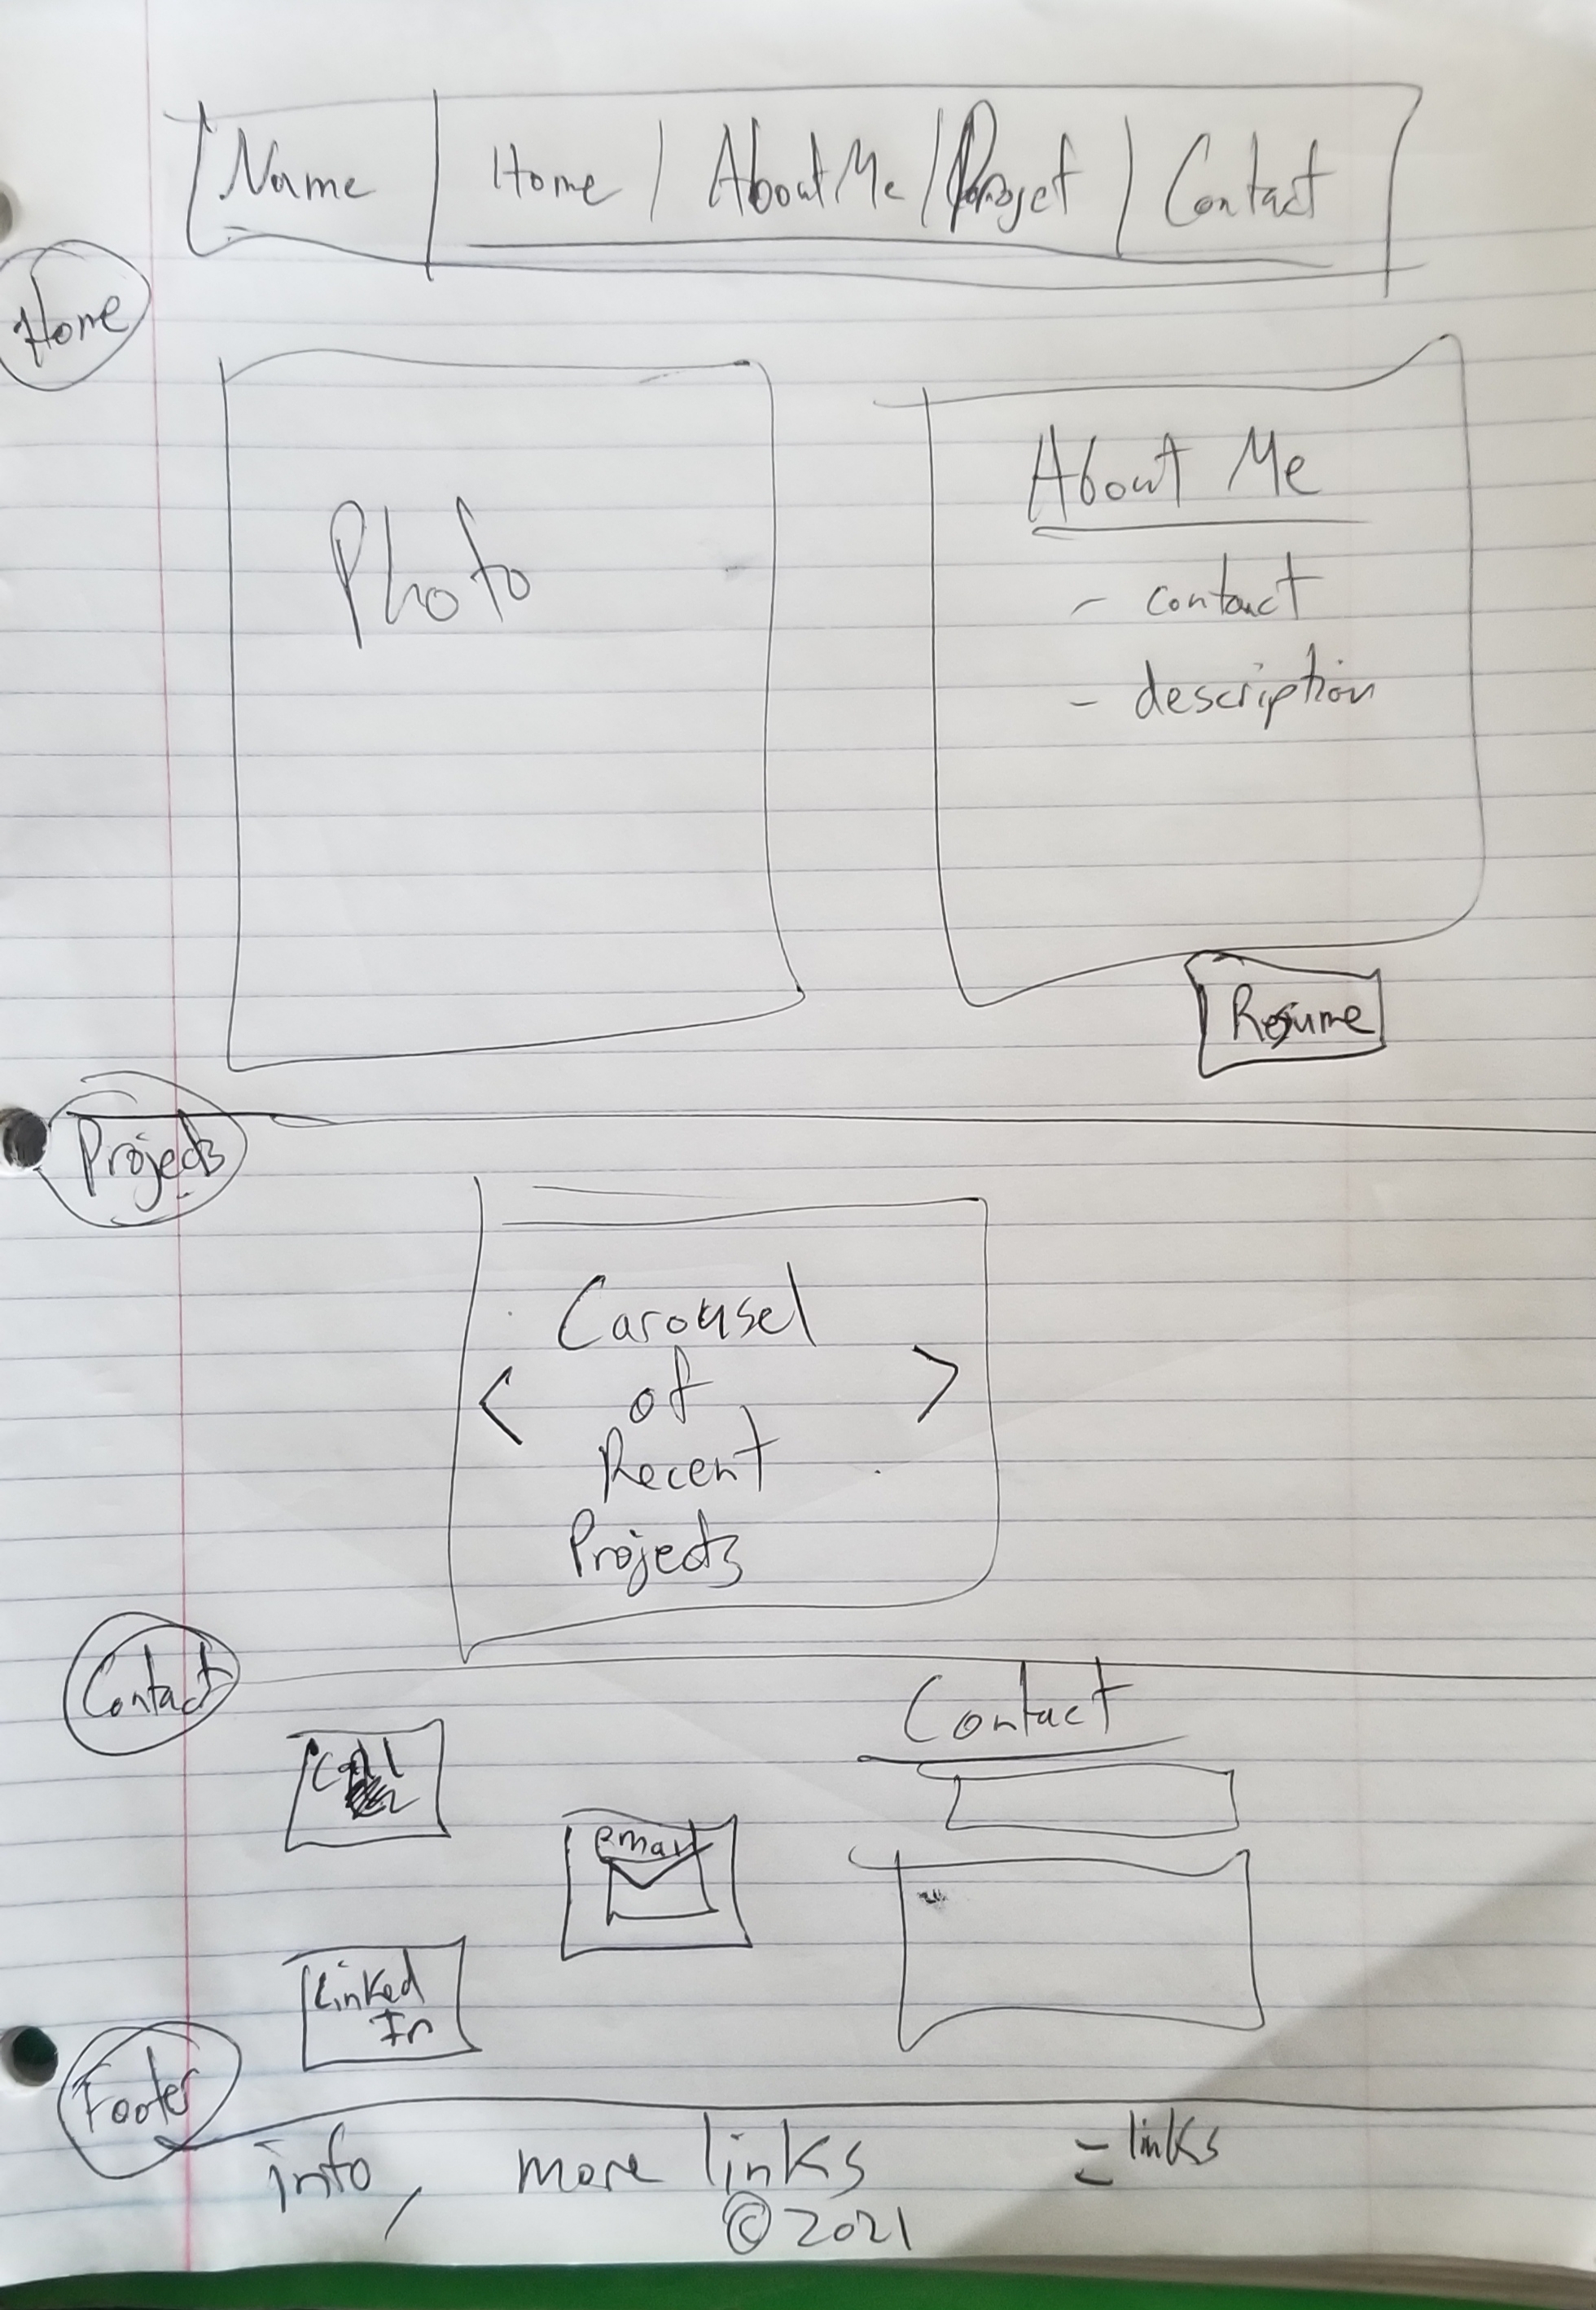 Name | Home | About Me | Projet | Contact
Home
Photo
About Me
- contact
- description
Resume
Projects
< Carousel >
of
Recent
Projects
Contact
Contact
Call
email
Linked
In
Footer
info, more links
- links
© 2021